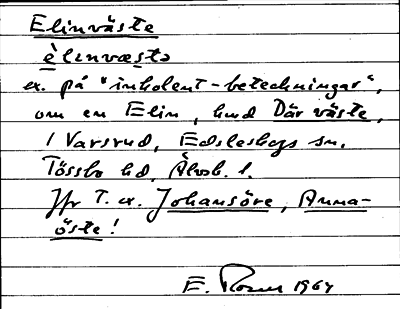 Elinväste
èlinvæstə
ex. på "inkolent-beteckningar",
om en Elin, kund Där väste,
i Varsrud, Edsleskogs sn.
Tössbo hd, Älvsb. l.
Jfr t. ex. Johansöre, Anna-
öste!
E. Rosen 1964